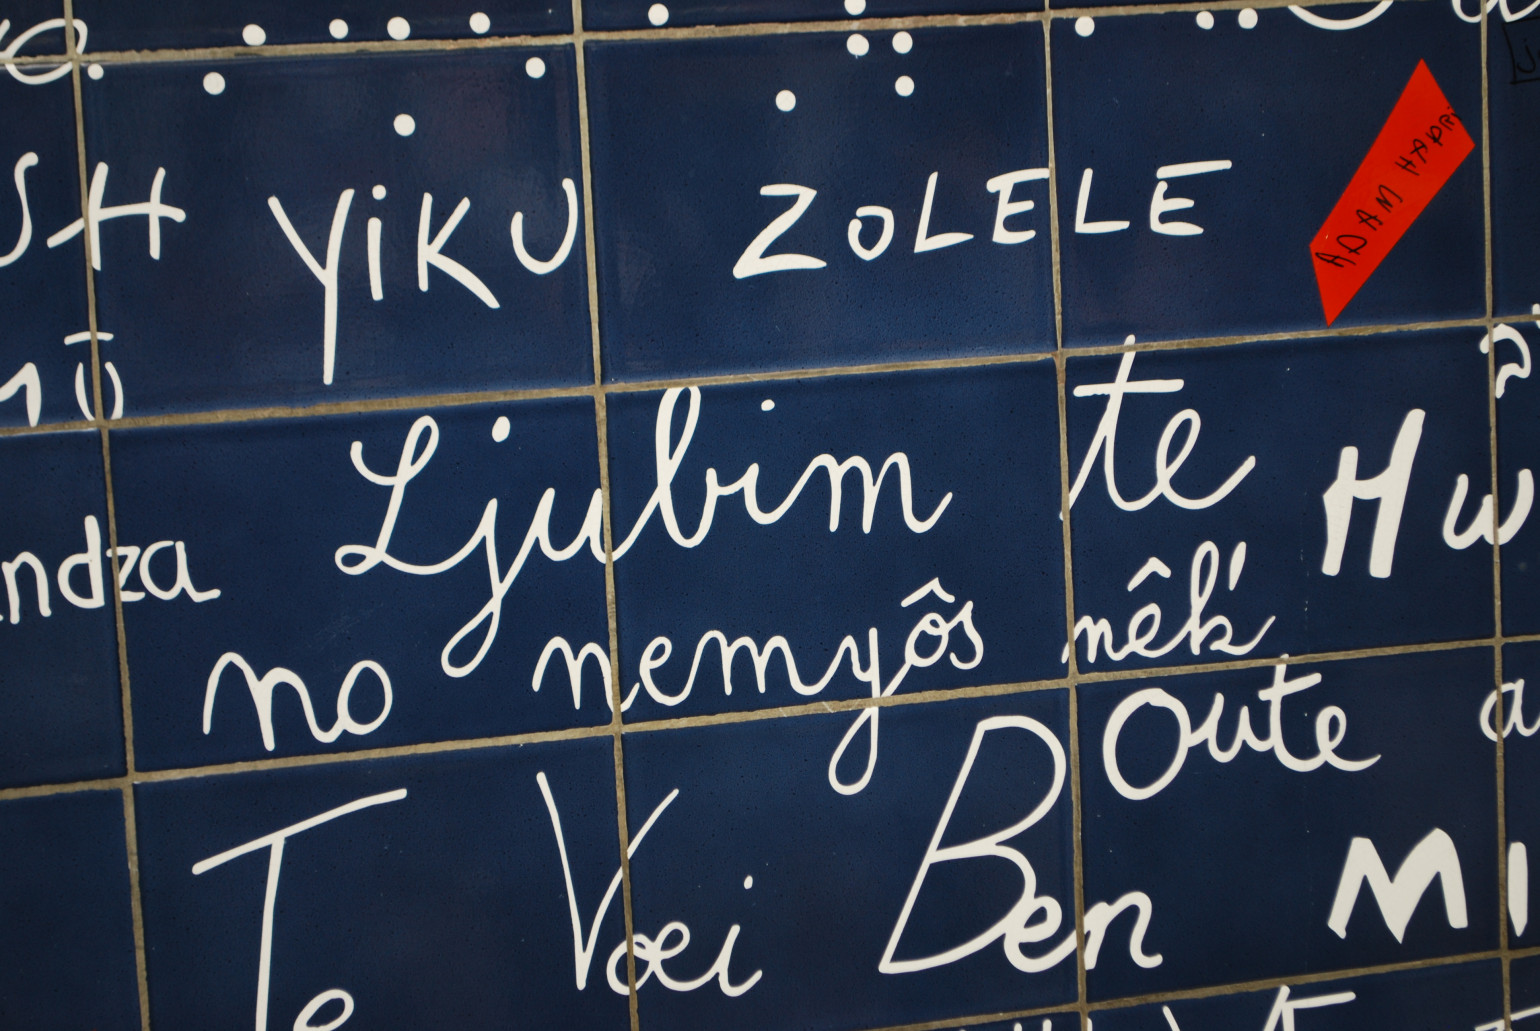 SH YiKU ZOLELE
ADAM HAPPI
Ljubim te
ndza
no nemyôs nêk'
Hw
Oute a
Te Voei Ben
MI